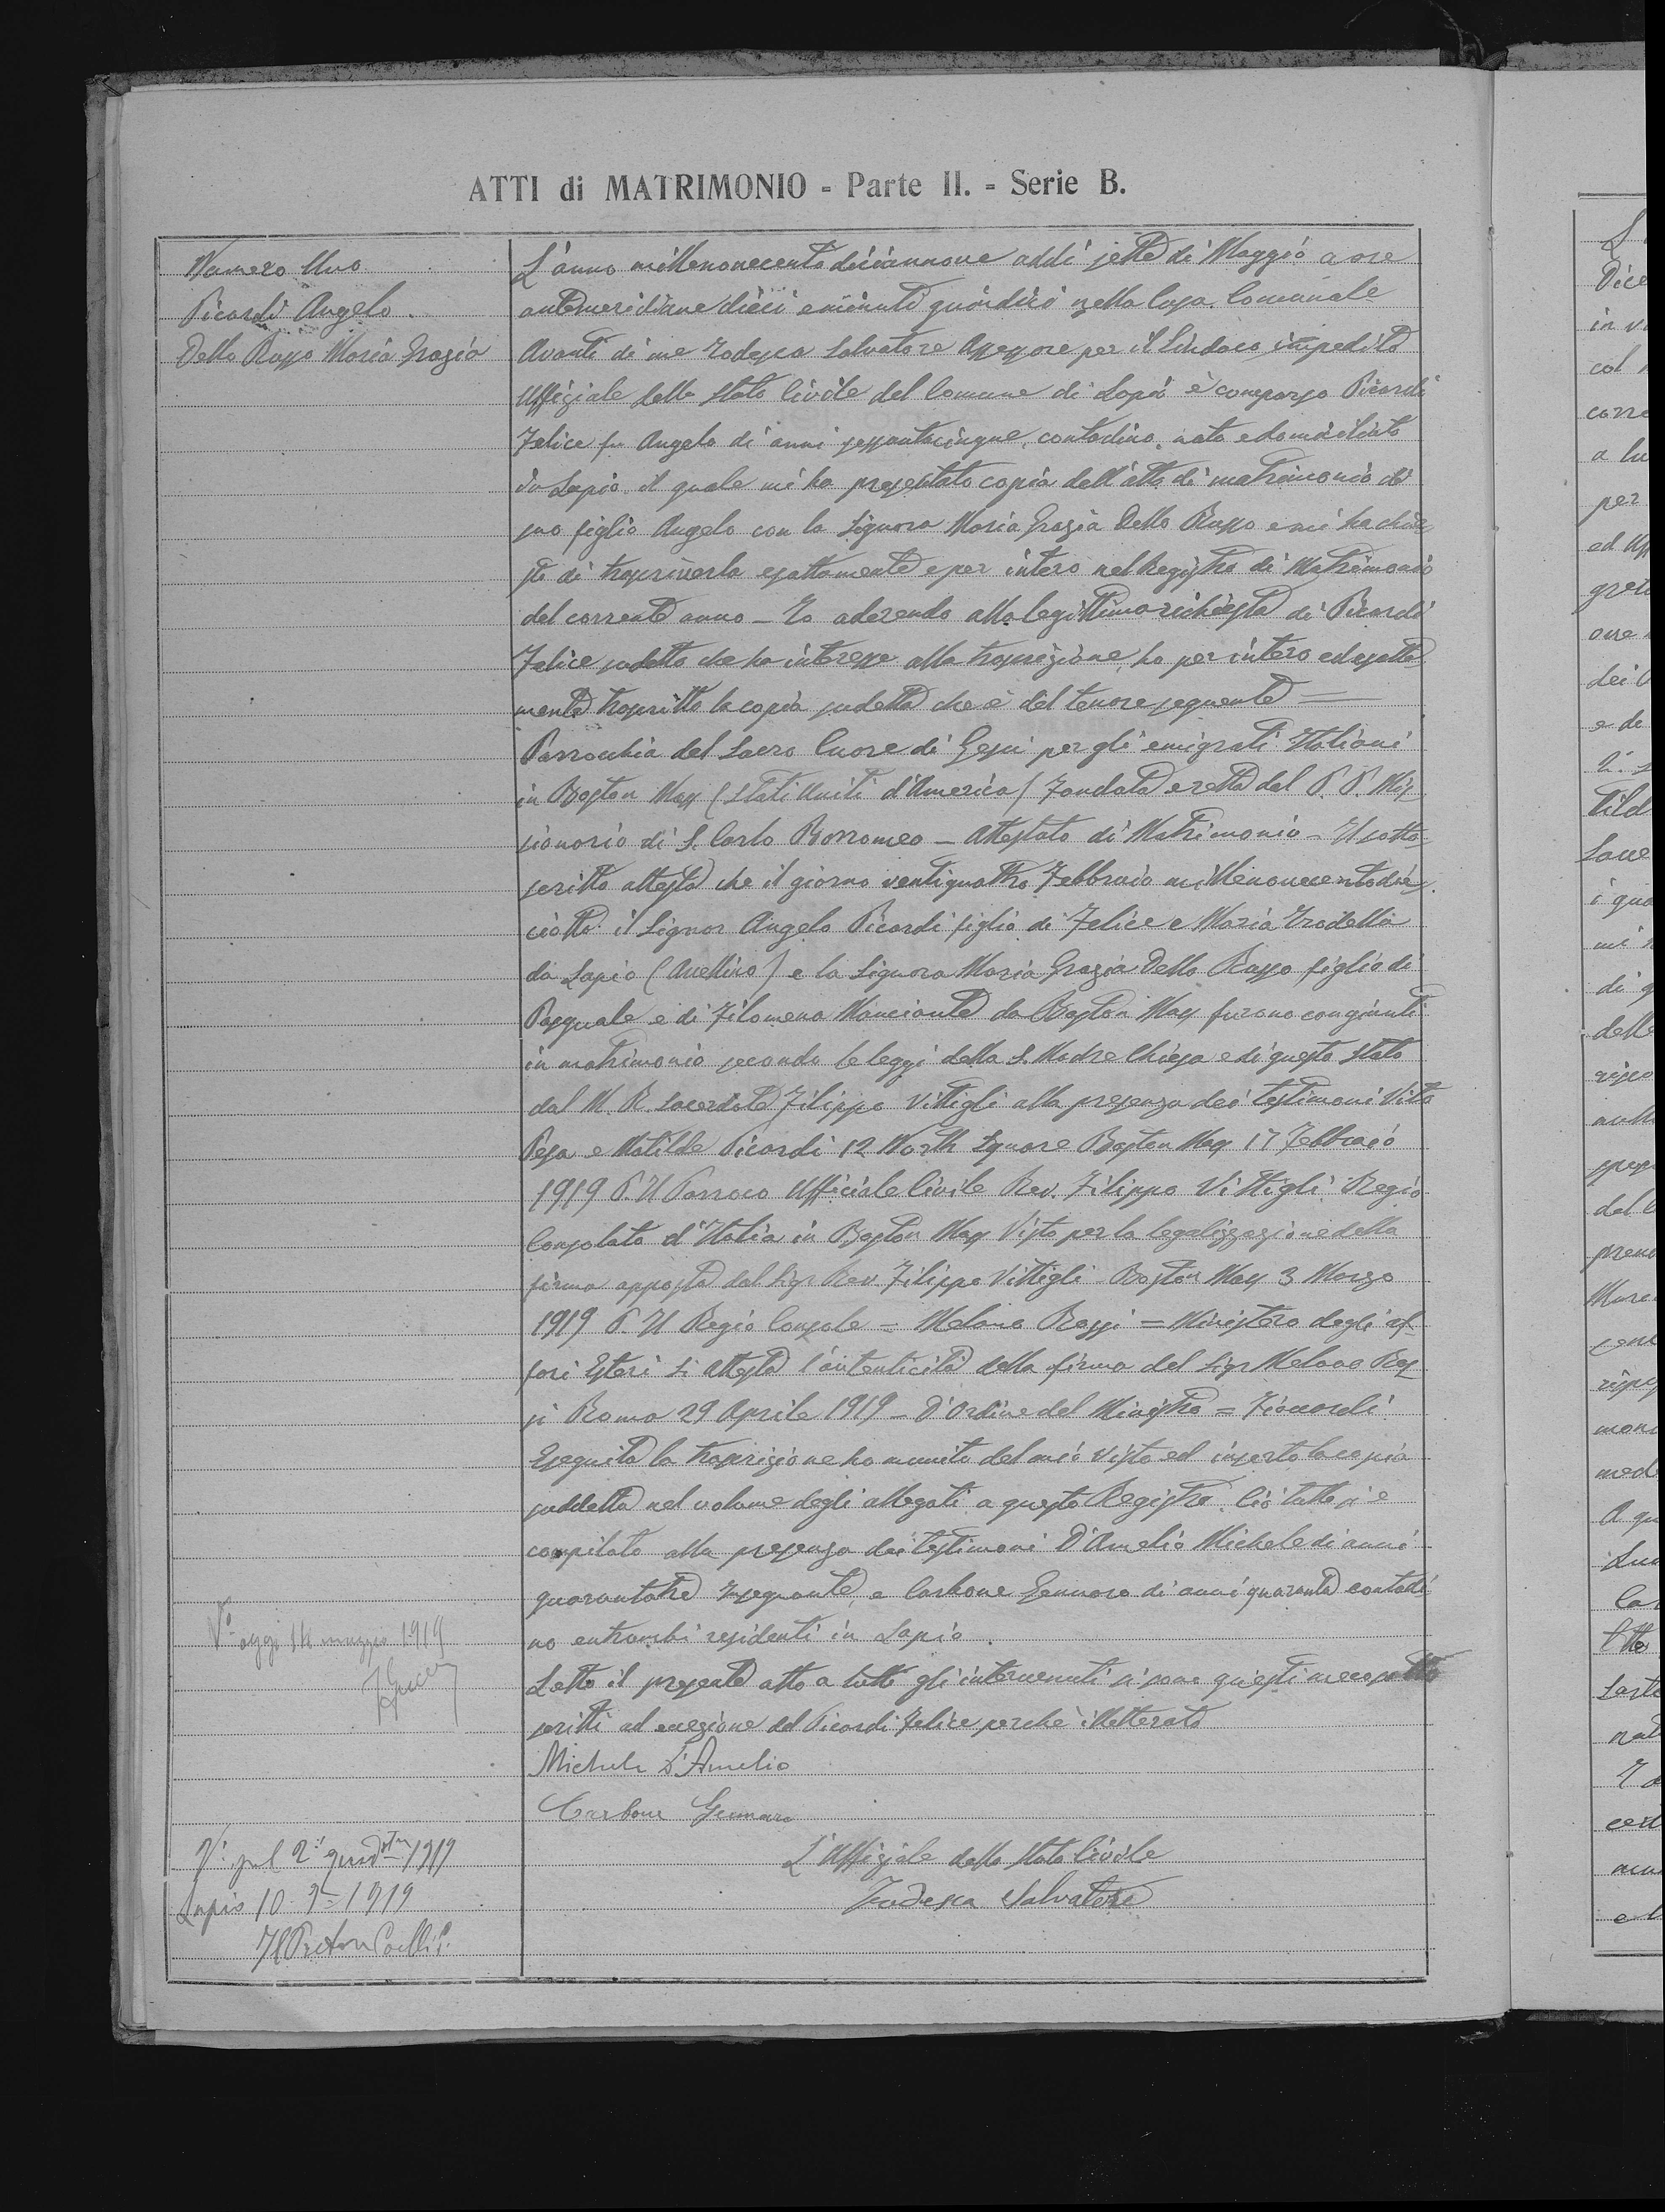 ATTI di MATRIMONIO - Parte II. - Serie B.
Numero Uno
Picardi Angelo
Dello Russo Maria Grazia
L'anno millenovecentodiciannove addì sette di Maggio a ore
antimeridiane dieci e minuti quindici nella Casa Comunale
Avanti di me Todesca Salvatore Assessore per il Sindaco impedito
Uffiziale dello Stato Civile del Comune di Lapio è comparso Picardi
Felice fu Angelo di anni sessantacinque, contadino, nato e domiciliato
in Lapio il quale mi ha presentato copia dell'atto di matrimonio di
suo figlio Angelo con la Signora Maria Grazia Dello Russo e mi ha chie
sto di trascriverla esattamente e per intero nel Registro di Matrimonio
del corrente anno - Io aderendo alla legittima richiesta di Picardi
Felice sudetto che ha interesse alla trascrizione, ho per intero ed esatta
mente trascritto la copia sudetta che è del tenore seguente =
Parrocchia del Sacro Cuore di Gesù per gli emigrati Italiani
in Boston Mass (Stati Uniti d'America) Fondata e retta dal P. P. Mis
sionario di S. Carlo Borromeo - Attestato di Matrimonio - Il sotto
scritto attesta che il giorno ventiquattro Febbraio millenovecentodi
ciotto il Signor Angelo Picardi figlio di Felice e Maria
da Lapio (Avellino) e la Signora Maria Grazia Dello Russo figlia di
Pasquale e di Filomena da Boston Mass furono congiunti
in matrimonio secondo le leggi della S. Madre Chiesa e di questo Stato
dal M. R. Sacerdote Filippo Vittigli alla presenza dei testimoni Vito
Pesa e Matilde Picardi 12 North Square Boston Mass 17 Febbraio
1919 P. Il Parroco Ufficiale Civile Rev. Filippo Vittigli Regio
Consolato d'Italia in Boston Mass Visto per la legalizzazione della
firma apposta dal Sigr Rev. Filippo Vittigli Boston Mass 3 Marzo
1919 P. Il Regio Console = Melano Rossi = Ministero degli af
fari Esteri Si attesta l'autenticità della firma del Sigr Melano Ros
si Roma 29 Aprile 1919 - D'Ordine del Ministro =
Eseguita la trascrizione ho munito del mio visto ed inserto la copia
suddetta nel volume degli allegati a questo Registro. Ciò tutto si è
compilato alla presenza dei testimoni D'Amelio Michele di anni
quarantatre Insegnante, e Carbone Gennaro di anni quaranta contadi
no entrambi residenti in Lapio.
Letto il presente atto a tutti gli intervenuti si sono questi meco sotto
scritti ad eccezione del Picardi Felice perchè illetterato
Michele D'Amelio
Carbone Gennaro
L'Uffiziale dello Stato Civile
Todesca Salvatore
Vo oggi 14 maggio 1919
Vo pel 2o quadre 1919
Lapio 10 1919
Il Pretore